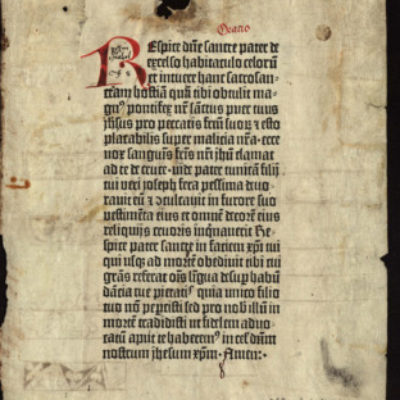 Oratio
REspice dñe sancte pater de
excelso habitaculo celorũ
et intuere hanc sacrosan-
ctam hostiã quã tibi obtulit ma-
gnꝰ pontifex nr̃ sanctus puer tuus
jhesus pro peccatis frm̃ suoꝝ ⁊ esto
placabilis super malicia nr̃a· ecce
vox sanguinis fr̃is nr̃i jhũ clamat
ad te de cruce· vide pater tunicã filij
tui veri joseph fera pessima devo-
ravit eũ ⁊ ↄculcavit in furore suo
vestimẽta eius et omnẽ decorẽ eius
reliquijs cruoris inquinavit Re-
spice pater sancte in faciem xp̃i tui
qui usqꝫ ad mortẽ obedivit tibi cui
gr̃as referat oĩs lĩgua desuꝑ habũ
dãcia tue pietatꝭ quia unico filio
tuo nõ peꝑcisti sed pro nob̾ illũ in
mortẽ tradidisti ut fidelem advo-
catũ apud te haberemꝰ in cel dñm
nostrum jhesum xp̃m· Amen:·